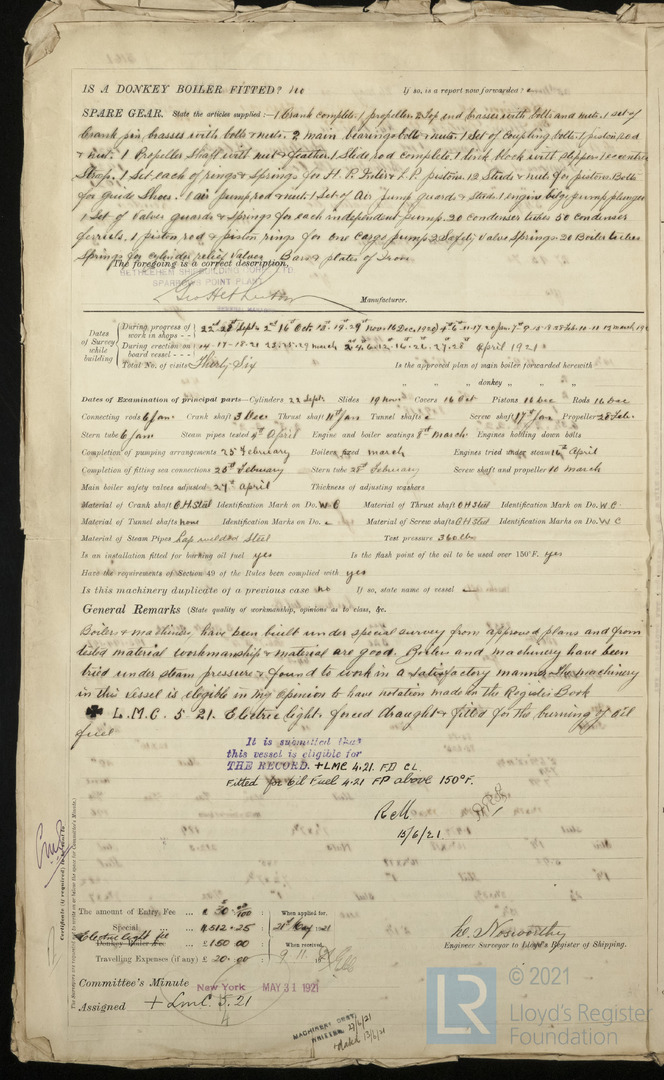 IS A DONKEY BOILER FITTED? no If so, is a report now forwarded?
SPARE GEAR. State the articles supplied:— 1 Crank complete. 1 propeller. 2 Top end brasses with bolts and nuts. 1 set of
Crank pin brasses with bolts & nuts. 2 main bearing bolts & nuts. 1 Set of Coupling bolts. 1 piston rod
& nut. 1 Propeller Shaft with nut & feather. 1 Slide rod complete. 1 link block with slipper. 1 eccentric
Strap. 1 Set each of rings & springs for H.P. Inter & L.P. pistons. 12 Studs & nuts for pistons. Bolts
for guide Shoes. 1 air pump rod & nut. 1 Set of Air Pump guards & Studs. 1 engine bilge pump plunger
1 Set of Valves guards & Springs for each independent pump. 20 condenser tubes 50 Condenser
ferruls. 1 piston rod & piston rings for one Cargo pump. 2 Safety Valve Springs. 20 Boiler tubes
Springs for cylinder relief Valves Bars & plates of Iron
The foregoing is a correct description,
BETHLEHEM SHIPBUILDING CORP. LTD
SPARROWS POINT PLANT
Manufacturer.
Dates of Survey while building
During progress of work in shops - -
During erection on board vessel - - - 14. 17. 18. 21. 23. 25. 29 march 2. 4. 6. 12. 16. 26. 27. 28 April 1921
Total No. of visits Thirty Six Is the approved plan of main boiler forwarded herewith
" " " donkey " " "
Dates of Examination of principal parts—Cylinders 22 Sept. Slides 19 nov. Covers 16 Oct Pistons 16 Dec Rods 16 Dec
Connecting rods 6 Jan. Crank shaft 3 Dec Thrust shaft 11th Jan Tunnel shafts Screw shaft 17th Jan Propeller 28 Feb.
Stern tube 6 Jan Steam pipes tested 4th April Engine and boiler seatings 8th march Engines holding down bolts
Completion of pumping arrangements 25 February Boilers fixed march Engines tried under steam 16th April
Completion of fitting sea connections 25th February Stern tube 28th February Screw shaft and propeller 10 march
Main boiler safety valves adjusted 27th April Thickness of adjusting washers
Material of Crank shaft O.H Steel Identification Mark on Do. W C Material of Thrust shaft O H Steel Identification Mark on Do. W C
Material of Tunnel shafts none Identification Marks on Do. Material of Screw shafts O H Steel Identification Marks on Do. W C
Material of Steam Pipes Lap welded Steel Test pressure 360 lbs
Is an installation fitted for burning oil fuel yes Is the flash point of the oil to be used over 150°F. yes
Have the requirements of Section 49 of the Rules been complied with yes
Is this machinery duplicate of a previous case no If so, state name of vessel
General Remarks (State quality of workmanship, opinions as to class, &c.
Boilers & machinery have been built under special survey from approved plans and from
tested material workmanship & material are good. Boilers and machinery have been
tried under steam pressure & found to work in a satisfactory manner. The machinery
in this vessel is elegible in my opinion to have notation made in the Register Book
✠ L.M.C. 5-21. Electric light. forced draught & fitted for the burning of oil
fuel
It is submitted that
this vessel is eligible for
THE RECORD. + LMC 4.21. FD CL
Fitted for Oil Fuel 4.21 FP above 150°F.
13/6/21.
Certificate (if required) to be sent to
The amount of Entry Fee ... £ When applied for,
Special ... 512.25
Electric light fee
Donkey Boiler Fee ... £ 150.00 When received,
Travelling Expenses (if any) £ 20.00
Engineer Surveyor to Lloyd's Register of Shipping.
Committee's Minute New York MAY 31 1921
Assigned + LMC 5.21
MACHINERY CERT.
WRITTEN
© 2021
LR
Lloyd's Register
Foundation